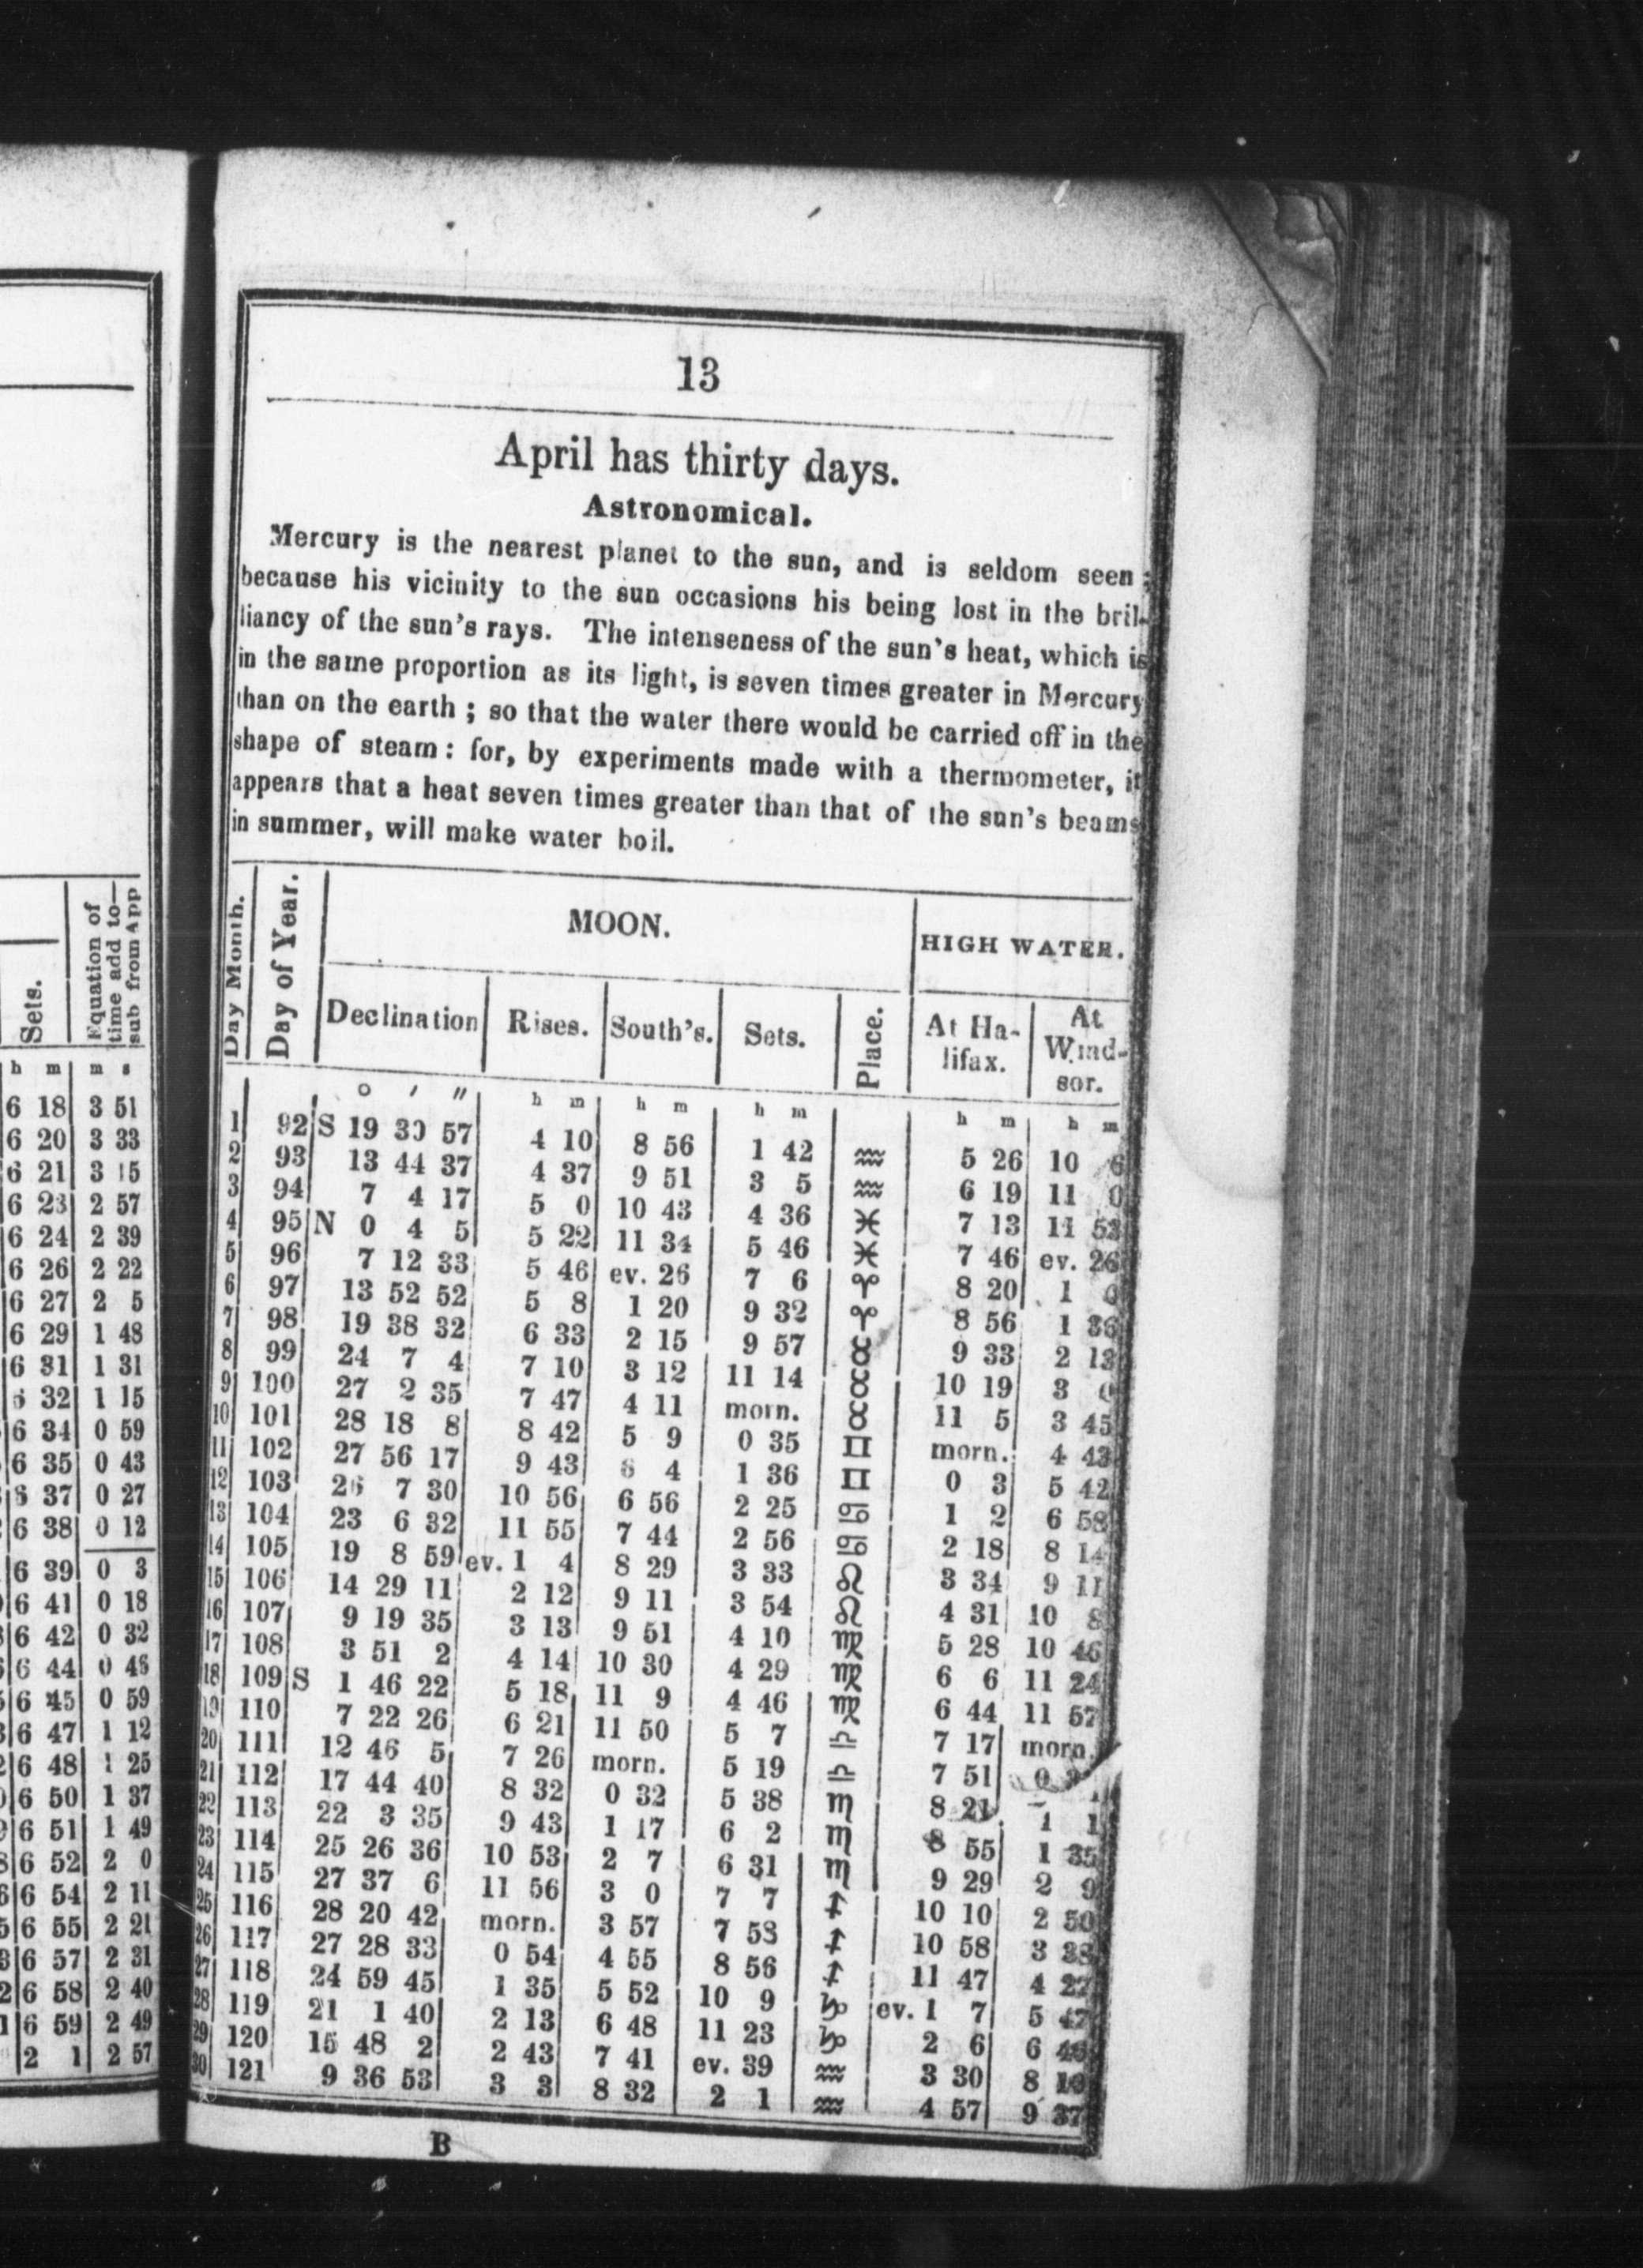 Sets.
Equation of
time add to—
sub from App
h m m s
6 18 3 51
6 20 3 33
6 21 3 15
6 23 2 57
6 24 2 39
6 26 2 22
6 27 2 5
6 29 1 48
6 31 1 31
6 32 1 15
6 34 0 59
6 35 0 43
6 37 0 27
6 38 0 12
6 39 0 3
6 41 0 18
6 42 0 32
6 44 0 46
6 45 0 59
6 47 1 12
6 48 1 25
6 50 1 37
6 51 1 49
6 52 2 0
6 54 2 11
6 55 2 21
6 57 2 31
6 58 2 40
6 59 2 49
2 1 2 57
13
April has thirty days.
Astronomical.
Mercury is the nearest planet to the sun, and is seldom seen ;
because his vicinity to the sun occasions his being lost in the bril-
liancy of the sun's rays. The intenseness of the sun's heat, which is
in the same proportion as its light, is seven times greater in Mercury
than on the earth ; so that the water there would be carried off in the
shape of steam : for, by experiments made with a thermometer, it
appears that a heat seven times greater than that of the sun's beams
in summer, will make water boil.
Day Month.
Day of Year.
MOON.
HIGH WATER.
Declination
Rises.
South's.
Sets.
Place.
At Ha-
lifax.
At
Wind-
sor.
° ′ ″ h m h m h m h m h m
1 92 S 19 30 57 4 10 8 56 1 42 ♒ 5 26 10 6
2 93 13 44 37 4 37 9 51 3 5 ♒ 6 19 11 0
3 94 7 4 17 5 0 10 43 4 36 ♓ 7 13 11 53
4 95 N 0 4 5 5 22 11 34 5 46 ♓ 7 46 ev. 26
5 96 7 12 33 5 46 ev. 26 7 6 ♈ 8 20 1 0
6 97 13 52 52 5 8 1 20 9 32 ♈ 8 56 1 36
7 98 19 38 32 6 33 2 15 9 57 ♉ 9 33 2 13
8 99 24 7 4 7 10 3 12 11 14 ♉ 10 19 3 0
9 100 27 2 35 7 47 4 11 morn. ♉ 11 5 3 45
10 101 28 18 8 8 42 5 9 0 35 ♊ morn. 4 43
11 102 27 56 17 9 43 6 4 1 36 ♊ 0 3 5 42
12 103 26 7 30 10 56 6 56 2 25 ♋ 1 2 6 58
13 104 23 6 32 11 55 7 44 2 56 ♋ 2 18 8 14
14 105 19 8 59 ev. 1 4 8 29 3 33 ♌ 3 34 9 11
15 106 14 29 11 2 12 9 11 3 54 ♌ 4 31 10 8
16 107 9 19 35 3 13 9 51 4 10 ♍ 5 28 10 46
17 108 3 51 2 4 14 10 30 4 29 ♍ 6 6 11 24
18 109 S 1 46 22 5 18 11 9 4 46 ♍ 6 44 11 57
19 110 7 22 26 6 21 11 50 5 7 ♎ 7 17 morn.
20 111 12 46 5 7 26 morn. 5 19 ♎ 7 51 0
21 112 17 44 40 8 32 0 32 5 38 ♏ 8 21 1 1
22 113 22 3 35 9 43 1 17 6 2 ♏ 8 55 1 35
23 114 25 26 36 10 53 2 7 6 31 ♏ 9 29 2 9
24 115 27 37 6 11 56 3 0 7 7 ♐ 10 10 2 50
25 116 28 20 42 morn. 3 57 7 58 ♐ 10 58 3 38
26 117 27 28 33 0 54 4 55 8 56 ♐ 11 47 4 27
27 118 24 59 45 1 35 5 52 10 9 ♑ ev. 1 7 5 47
28 119 21 1 40 2 13 6 48 11 23 ♑ 2 6 6 46
29 120 15 48 2 2 43 7 41 ev. 39 ♒ 3 30 8 10
30 121 9 36 53 3 3 8 32 2 1 ♒ 4 57 9 37
B